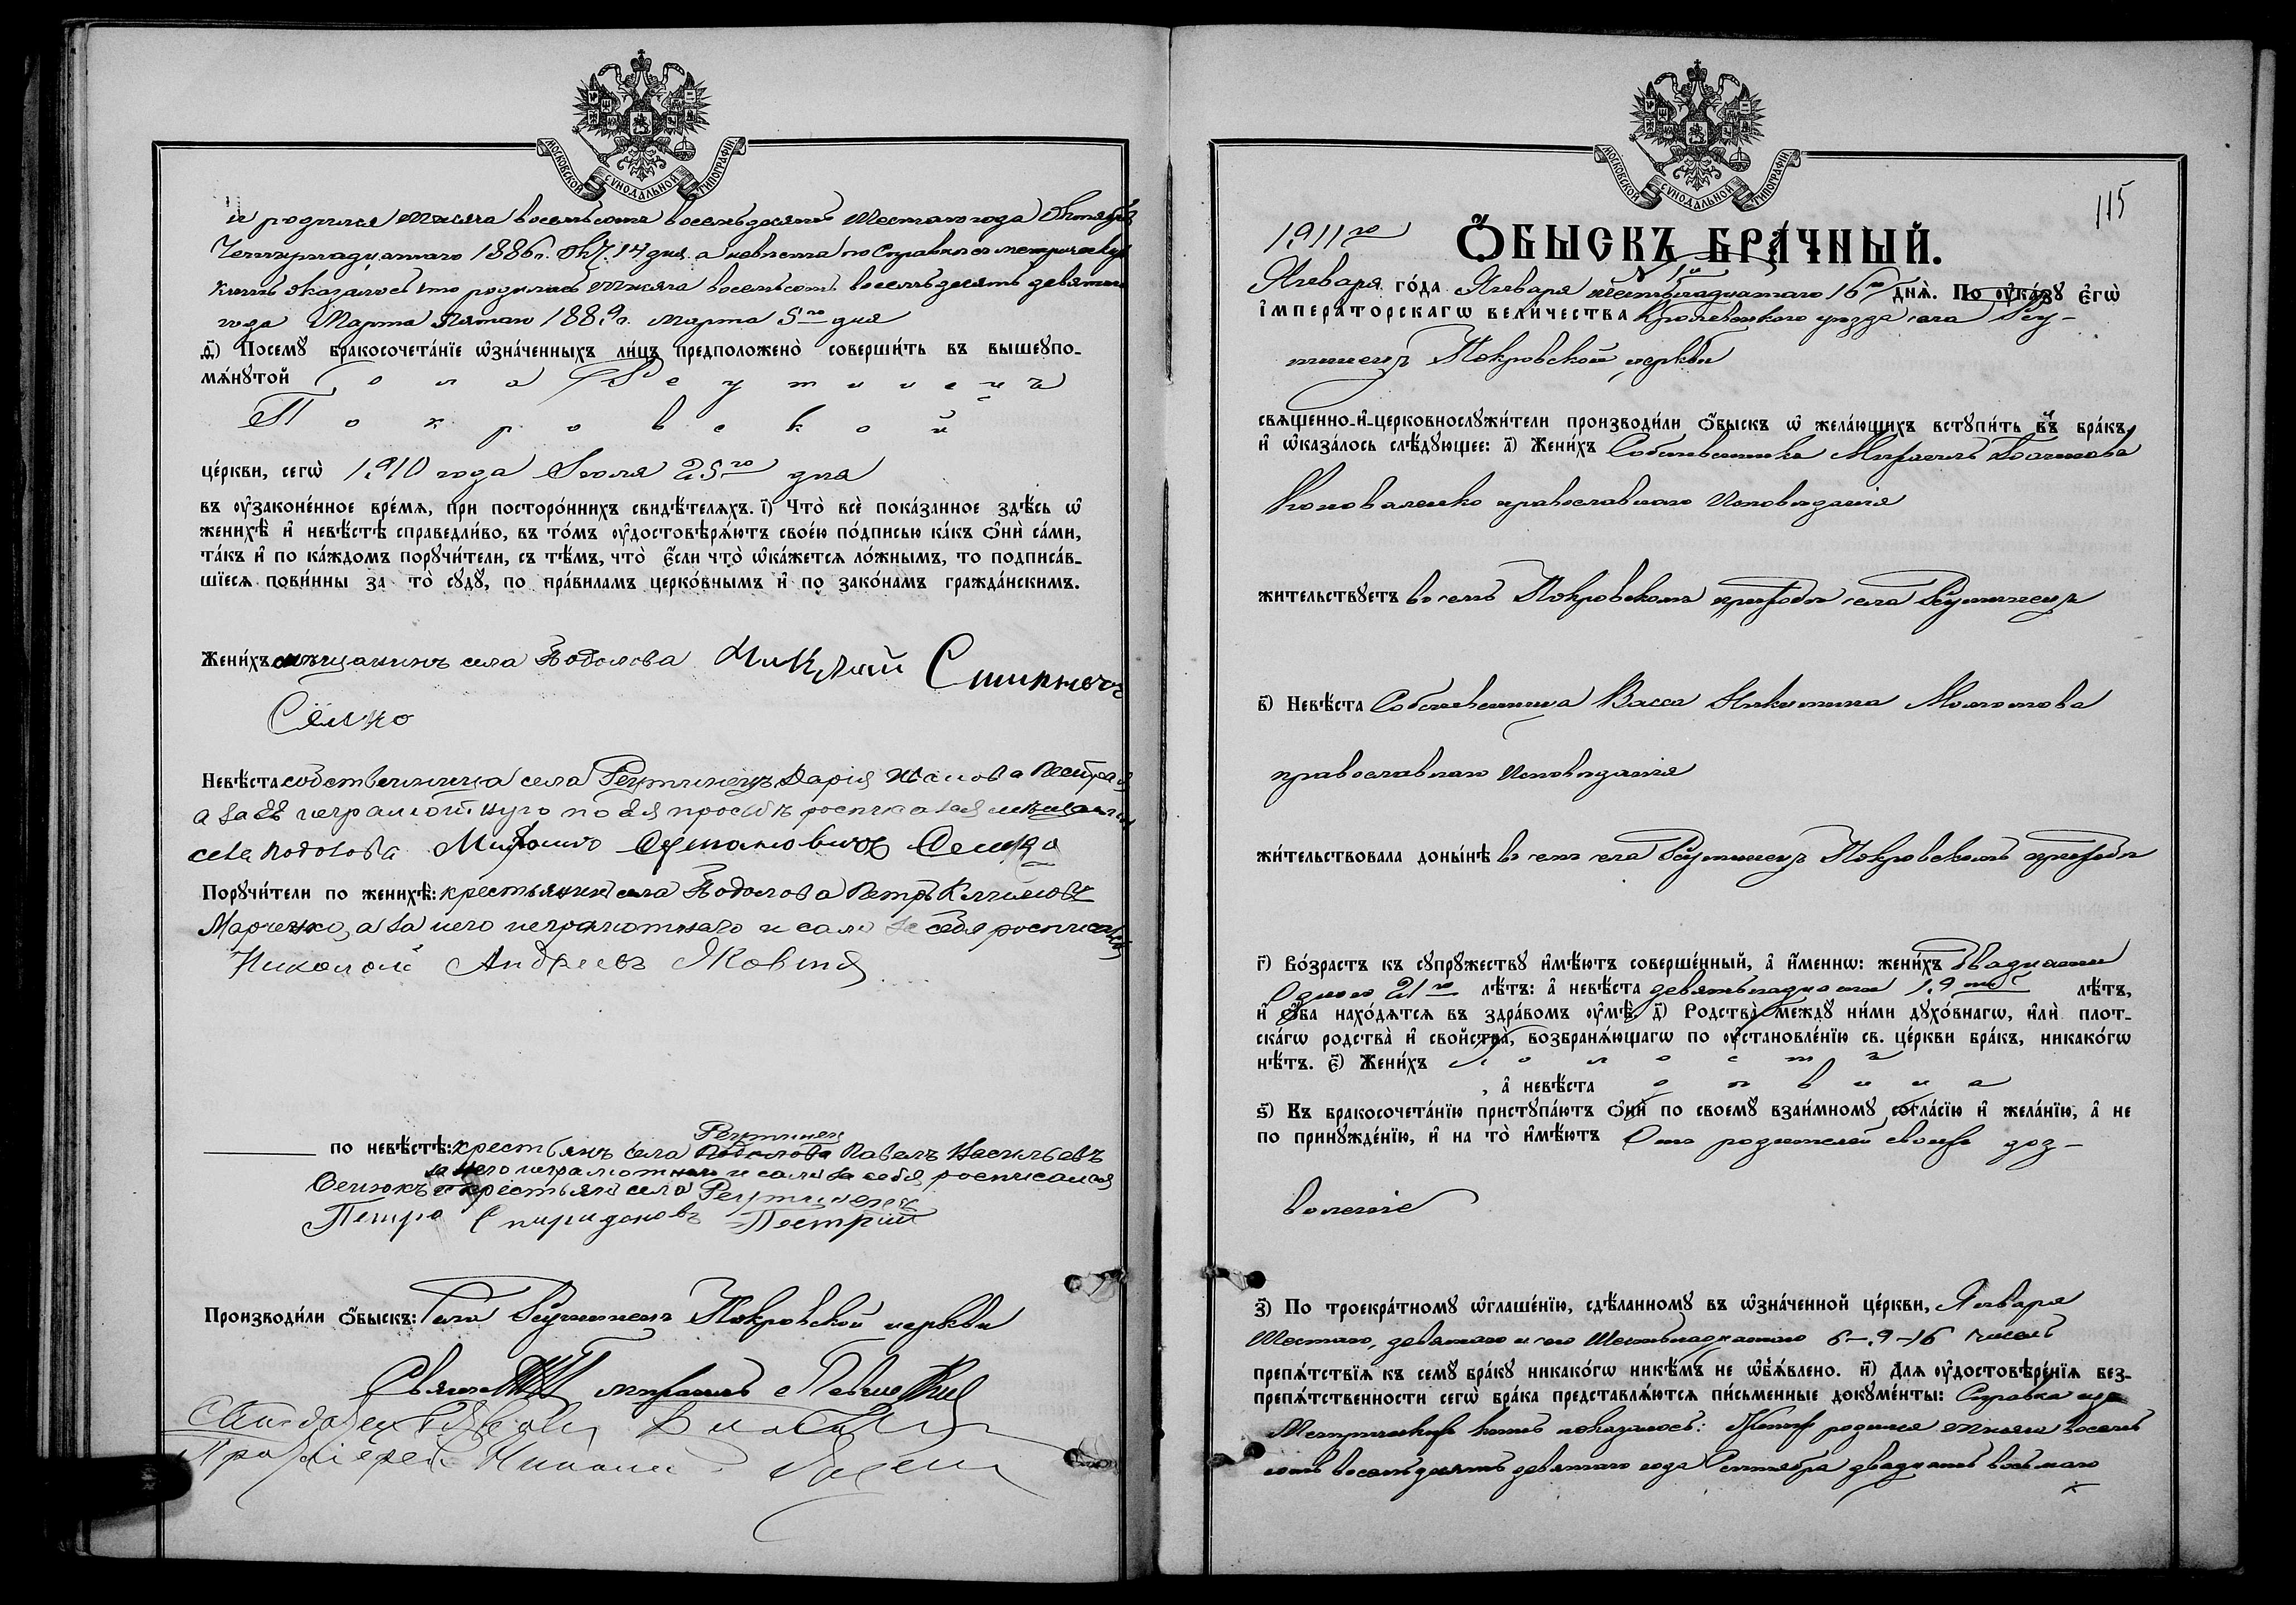 МОСКОВСКОЙ СѴНОДАЛЬНОЙ ТИПОГРАФІИ
и родился тысяча восемьсотъ восемьдесятъ шестаго года Октября
Четырнадцатаго 1886 г. Окт. 14 дня. а невѣста по Справкѣ съ метрическихъ
книгъ оказалось что родилась тысяча восемьсотъ восемьдесятъ девятаго
года Марта Пятаго 1889 г. марта 5го дня
д҃) Посемꙋ̀ бракосочета́нїе ѡ҆зна́ченныхъ ли́цъ предположено̀ соверши́ть въ вышеꙋпо-
мѧ́нꙋтой села Реутинецъ
Покровской
це́ркви, сегѡ̀ 1910 года Іюля 25го дня
въ ᲂу҆зако́ненное вре́мѧ, при посторо́ннихъ свидѣ́телѧхъ. і҃) Что̀ всѐ пока́занное здѣ́сь ѡ҆
женихѣ̀ и҆ невѣ́стѣ справедли́во, въ то́мъ ᲂу҆достовѣрѧ́ютъ свое́ю по́дписью ка́къ ѻ҆нѝ са́ми,
та́къ и҆ по ка́ждомъ порꙋчи́тели, съ тѣ́мъ, что̀ є҆́сли что̀ ѡ҆ка́жетсѧ ло́жнымъ, то подписа́в-
шїесѧ пови́нны за то̀ сꙋдꙋ̀, по пра́виламъ церко́внымъ и҆ по зако́намъ гражда́нскимъ.
Жени́хъ мѣщанинъ села Подолова Николай
Семко
Невѣ́ста собственница села Реутинецъ Дарія Иванова Пестрая
а за её неграмотную по ея просьбѣ росписался мѣщанинъ
села Подолова
Порꙋчи́тели по женихѣ̀: крестьянинъ села Подолова Петръ Климовъ
Марченко, а за него неграмотнаго и самъ за себя росписался
Николай Андреевъ Яковина
по невѣ́стѣ: крестьянъ села Подолова Реутинецъ Павелъ Васильевъ
за него неграмотнаго и самъ за себя росписался
крестьянъ села Реутинецъ
Петро Спиридоновъ Пестрый
Производи́ли ѻ҆́быскъ: Села Реутинецъ Покровской церкви
115
МОСКОВСКОЙ СѴНОДАЛЬНОЙ ТИПОГРАФІИ
1911го Ѻ҆́БЫСКЪ БРА́ЧНЫЙ.
Января го́да Января шестьнадцатаго 16го днѧ̀. По ᲂу҆ка́зꙋ є҆гѡ̀
і҆мпера́торскагѡ вели́чества Кролевецкого уѣзда села Реу-
тинецъ Покровской церкви
свѧще́нно-и҆-церковнослꙋжи́тели производи́ли ѻ҆́быскъ ѡ҆ жела́ющихъ встꙋпи́ть въ бра́къ,
и҆ ѡ҆каза́лось слѣ́дꙋющее: а҃) Жени́хъ Собственникъ Михаилъ
Коноваленко православнаго Исповѣданія
жи́тельствꙋетъ въ семъ Покровскомъ приходѣ села Реутинецъ
в҃) Невѣ́ста Собственница Васса Никитина Молотова
православнаго Исповѣданія
жи́тельствовала доны́нѣ въ семъ села Реутинецъ Покровскомъ приходѣ
г҃) Во́зрастъ къ сꙋпрꙋ́жествꙋ и҆мѣ́ютъ соверше́нный, а҆ и҆́меннѡ: жени́хъ двадцати
Одного 21го лѣ́тъ: а҆ невѣ́ста девятьнадцати 19ти лѣ́тъ,
и҆ ѻ҆́ба нахо́дѧтсѧ въ здра́вомъ ᲂу҆мѣ̀. д҃) Родства̀ междꙋ̀ ни́ми дꙋхо́внагѡ, и҆лѝ плот-
ска́гѡ родства̀ и҆ свойства̀, возбранѧ́ющагѡ по ᲂу҆становле́нїю св. це́ркви бра́къ, никако́гѡ
нѣ́тъ. є҃) Жени́хъ холостъ
, а҆ невѣ́ста дѣвица
ѕ҃) Къ бракосочета́нїю пристꙋпа́ютъ ѻ҆нѝ по своемꙋ̀ взаи́мномꙋ согла́сїю и҆ жела́нїю, а҆ не
по принꙋжде́нїю, и҆ на то̀ и҆мѣ́ютъ Отъ родителей своихъ доз-
воленіе
з҃) По троекра́тномꙋ ѡ҆глаше́нїю, сдѣ́ланномꙋ въ ѡ҆зна́ченной це́ркви, Января
Шестаго, девятаго и сего Шестьнадцатаго 6-9-16 чиселъ
препѧ́тствїѧ къ семꙋ̀ бра́кꙋ никако́гѡ никѣ́мъ не ѡ҆б̾ѧ́влено. и҃) Длѧ ᲂу҆достовѣре́нїѧ без-
препѧ́тственности сегѡ̀ бра́ка представлѧ́ютсѧ пи́сьменные докꙋме́нты: Справка изъ
Метрическихъ книгъ показалось: Женихъ родился тысяча восемь
сотъ восемьдесятъ девятаго года Сентября двадцать восьмаго